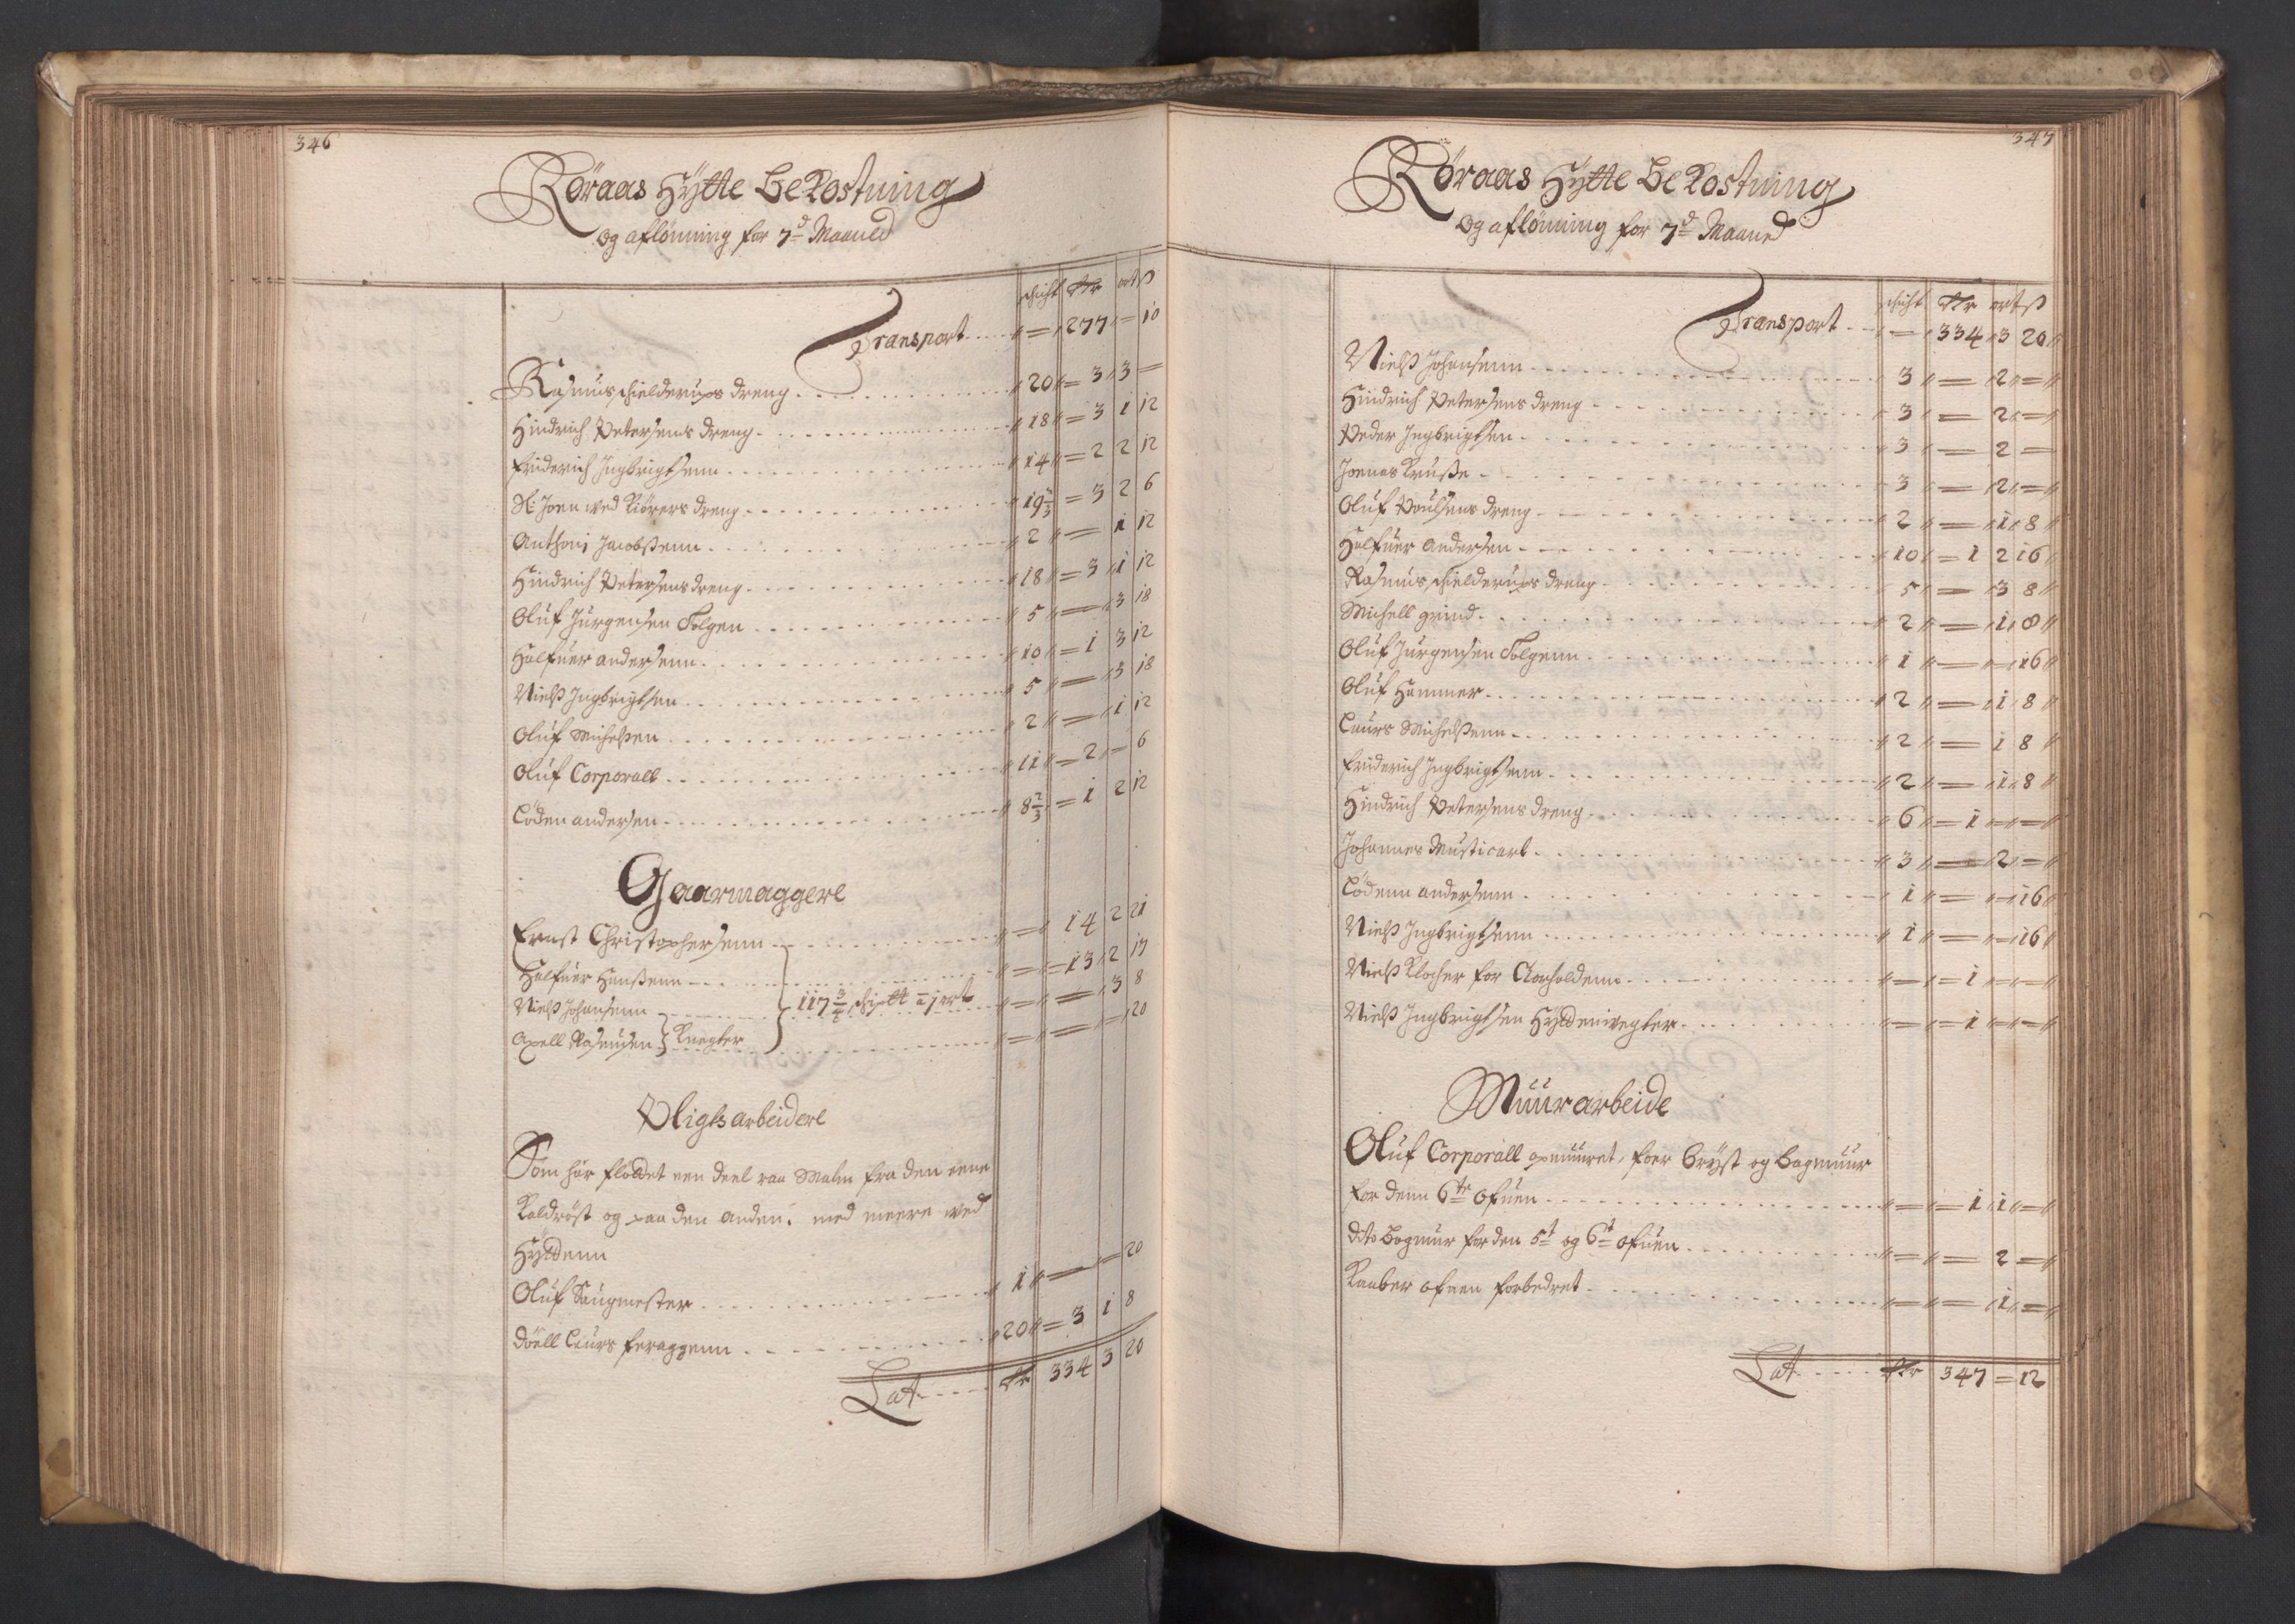 346
Röraas Hÿtte Bekostning
og aflönning for 7d Maaned
schicht Rdr ort ß
Transport 277 = 10
Rasmus schielderups dreng 20 = 3 3 =
Hindrich Petersens dreng 18 = 3 1 12
Friderich Ingbrigtsenn 14 = 2 2 12
Joen ved Kiörers dreng 19 2/3 = 3 2 6
Anthoni Jacobßenn 2 = 1 12
Hindrich Petersens dreng 18 = 3 1 12
Oluf Jürgensen Tolgen 5 = 3 18
Halfuer andersenn 10 = 1 3 12
Nielß Ingbrigtsen 5 = 3 18
Oluf Michelßen 2 = 1 12
Oluf Corporall 11 = 2 = 6
Löden andersen 8 2/3 = 1 2 12
Gaarmaggere
Ernst Christophersenn = 14 2 21
Halfuer Hanßenn = = 13 2 17
Nielß Johansenn 117 3/4 schicht a 1 ort = = 3 8
Axell Rasmusen Knegter = = = 20
Pligts arbeidere
Som har flöttet een deel raa Malm fra den eene
Kaldröst og paa den anden. med meere ved
Hÿttenn
Oluf Saugmester 1 = = 20
döell Laurs feraggenn 20 = 3 1 8
Lat Rdr 334 3 20
347
Röraas Hÿtte Bekostning
og aflönning for 7d Maaned
schicht Rdr ort ß
Transport = 334 3 20
Nielß Johansenn 3 = 2 =
Hindrich Petersens dreng 3 = 2 =
Peder Ingbrigtsen 3 = 2 =
Joenas Kruße 3 = 2 =
Oluf Poulsens dreng 2 = 1 8
Halfuer andersen 10 = 1 2 16
Rasmus schielderups dreng 5 = 3 8
Michell grind 2 = 1 8
Oluf Jürgensen Tolgenn 1 = = 16
Oluf Hammer 2 = 1 8
Laurs Michelßenn 2 = 1 8
Friderich Ingbrigtsenn 2 = 1 8
Hindrich Petersens dreng 6 = 1 = =
Johannes Musticart 3 = 2 =
Lödenn andersenn 1 = = 16
Nielß Ingbrigtsenn 1 = = 16
Nielß Klocher for = = 1 = =
Nielß Ingbrigtsen Hÿttenvegter = = 1 = =
Muurarbeide
Oluf Corporall opmuuret, foer brÿst og bagmuur
for denn 6te ofuen = = 1 1 =
dito Bagmur for den 5t og 6t ofuen = = 2 =
Kaaber ofuen forbedret = = 1 =
Lat Rdr 347 = 12